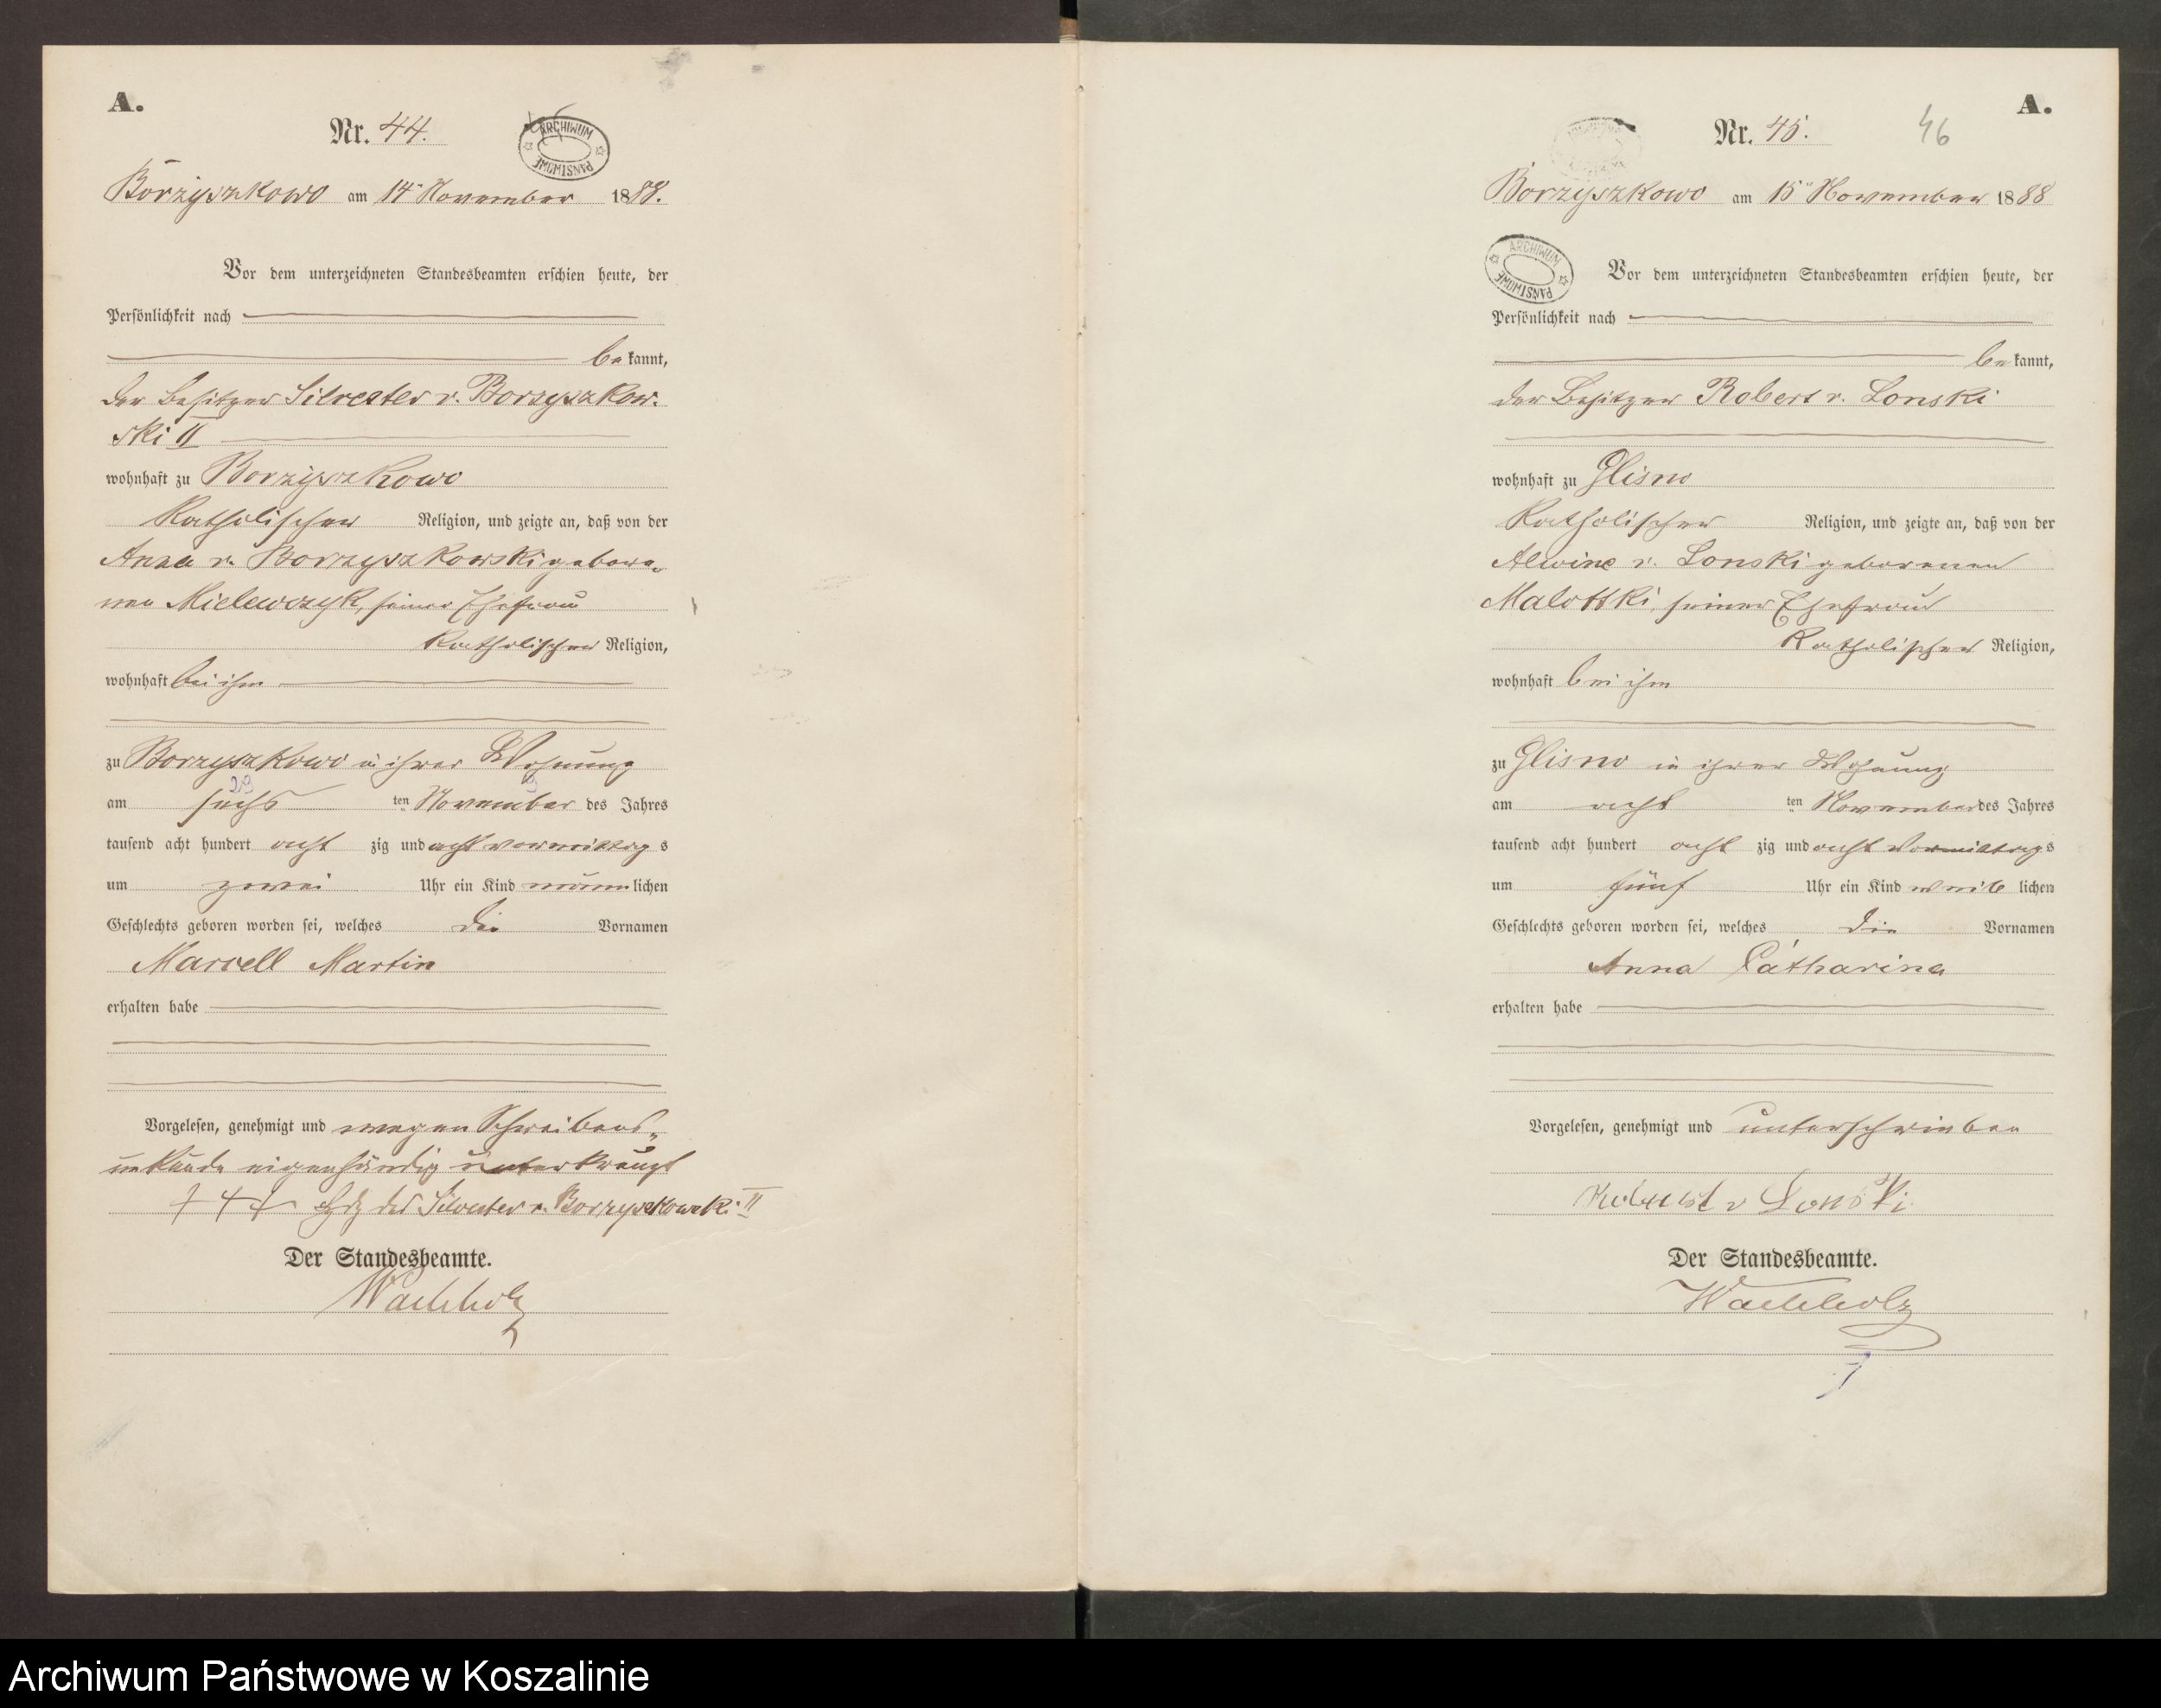 A.
Nr. 44.
ARCHIWUM PAŃSTWOWE
Borzyszkowo am 14ᵗ November 1888.
Vor dem unterzeichneten Standesbeamten erschien heute, der
Persönlichkeit nach
bekannt,
der Besitzer Silvester v. Borzyszkow-
ski II
wohnhaft zu Borzyszkowo
katholischer Religion, und zeigte an, daß von der
Anna v. Borzyszkowski gebore-
nen Mielewczyk, seiner Ehefrau
katholischer Religion,
wohnhaft bei ihm
zu Borzyszkowo in ihrer Wohnung
am sechs ten November des Jahres
tausend acht hundert acht zig und acht vormittags
um zwei Uhr ein Kind männlichen
Geschlechts geboren worden sei, welches die Vornamen
Marcell Martin
erhalten habe
Vorgelesen, genehmigt und wegen Schreibens-
unkunde eigenhändig unterkreuzt
+++ Hdz des Silvester v. Borzyszkowski II
Der Standesbeamte.
Wachholz
A.
Nr. 45.
46
Borzyszkowo am 15ᵗ November 1888
ARCHIWUM PAŃSTWOWE
Vor dem unterzeichneten Standesbeamten erschien heute, der
Persönlichkeit nach
bekannt,
der Besitzer Robert v. Lonski
wohnhaft zu Glisno
katholischer Religion, und zeigte an, daß von der
Alwine v. Lonski geborenen
Malottki, seiner Ehefrau
katholischer Religion,
wohnhaft bei ihm
zu Glisno in ihrer Wohnung
am acht ten November des Jahres
tausend acht hundert acht zig und acht Vormittags
um fünf Uhr ein Kind weiblichen
Geschlechts geboren worden sei, welches die Vornamen
Anna Catharina
erhalten habe
Vorgelesen, genehmigt und unterschrieben
Robert v Lonski
Der Standesbeamte.
Wachholz
Archiwum Państwowe w Koszalinie